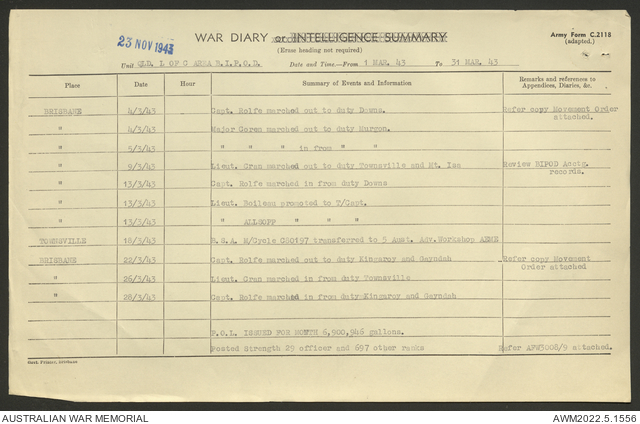 23 NOV 1943
WAR DIARY or INTELLIGENCE SUMMARY
(Erase heading not required)
Army Form C.2118
(adapted.)
Unit QLD. L OF C AREA B.I.P.O.D. Date and Time.—From 1 MAR. 43 To 31 MAR. 43
Place Date Hour Summary of Events and Information Remarks and references to Appendices, Diaries, &c.
BRISBANE 4/3/43 Capt. Rolfe marched out to duty Downs. Refer copy Movement Order attached.
" 4/3/43 Major Corem marched out to duty Murgon.
" 5/3/43 " " " in from " "
" 9/3/43 Lieut. Cran marched out to duty Townsville and Mt. Isa Review BIPOD Acctg. records.
" 13/3/43 Capt. Rolfe marched in from duty Downs
" 13/3/43 Lieut. Boileau promoted to T/Capt.
" 13/3/43 " ALLSOPP " " "
TOWNSVILLE 18/3/43 B.S.A. M/Cycle C80197 transferred to 5 Aust. Adv. Workshop AEME
BRISBANE 22/3/43 Capt. Rolfe marched out to duty Kingaroy and Gayndah Refer copy Movement Order attached
" 26/3/43 Lieut. Cran marched in from duty Townsville
" 28/3/43 Capt. Rolfe marched in from duty Kingaroy and Gayndah
P.O.L. ISSUED FOR MONTH 6,900,946 gallons.
Posted Strength 29 officer and 697 other ranks Refer AFW3008/9 attached.
Printer, Brisbane
AUSTRALIAN WAR MEMORIAL
AWM2022.5.1556